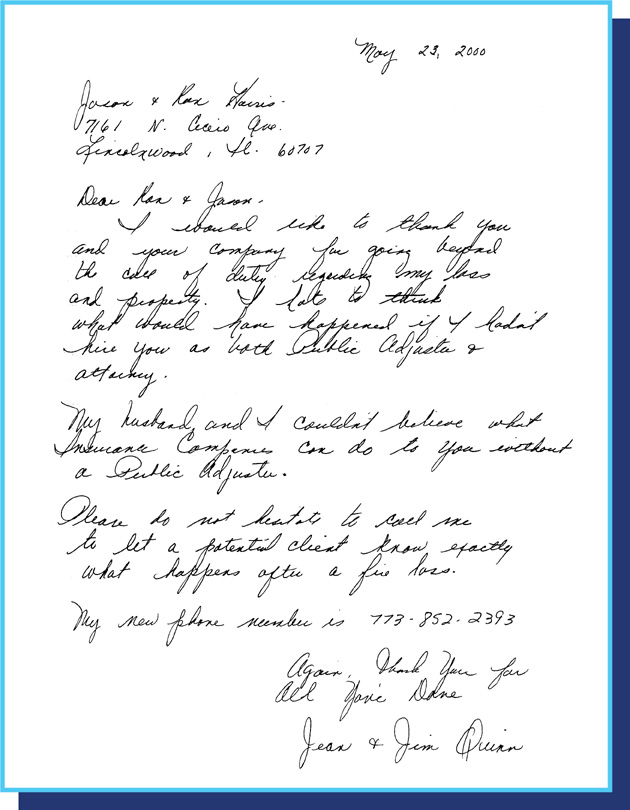 May 23, 2000
Jason & Ron Harris.
7161 N. Cicero Ave.
Lincolnwood, Il. 60707
Dear Ron & Jason.
I would like to thank you
and your company for going beyond
the call of duty regarding my loss
and property. I hate to think
what would have happened if I hadn't
hire you as both Public Adjuster &
attorney.
My husband, and I couldn't believe what
Insurance Companies can do to you without
a Public Adjuster.
Please do not hesitate to call me
to let a potential client know exactly
what happens after a fire loss.
My new phone number is 773-852-2393
Again, Thank You for
All You've Done
Jean & Jim Quinn